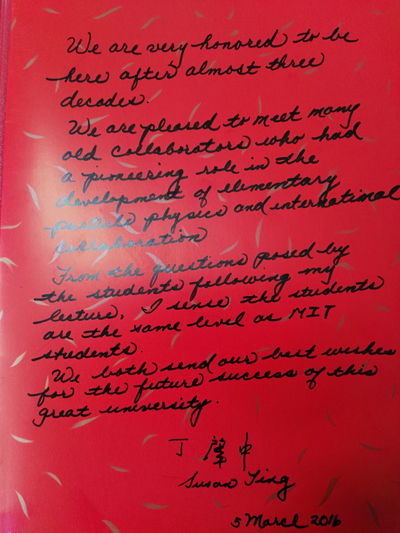 We are very honored to be
here after almost three
decades.
We are pleased to meet many
old collaborators who had
a pioneering role in the
development of elementary
particle physics and international
collaboration
From the questions posed by
the students following my
lecture, I sense the students
are the same level as MIT
students.
We both send our best wishes
for the future success of this
great university.
丁肇中
Susan Ting
5 March 2016